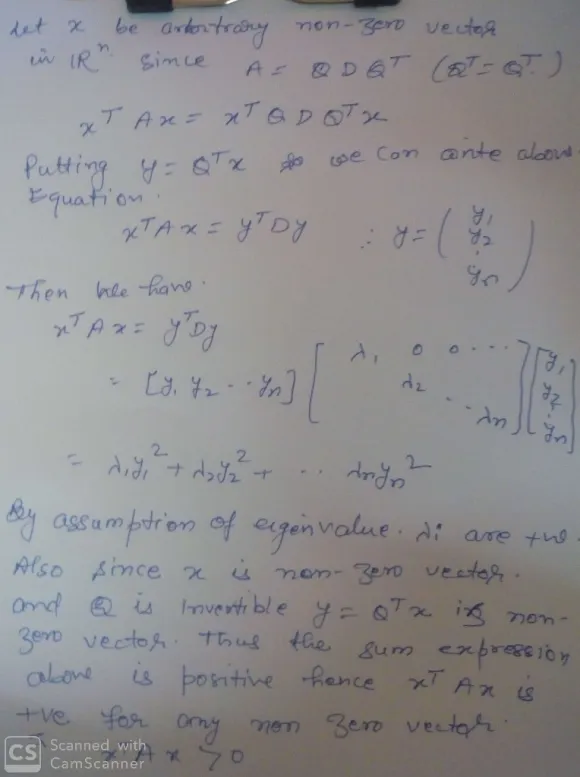 Let x be arbitrary non-zero vector
in ℝⁿ. Since A = Q D Qᵀ (Qᵀ = Qᵀ.)
xᵀ A x = xᵀ Q D Qᵀ x
Putting y = Qᵀ x we can write above
Equation.
xᵀ A x = yᵀ D y ∴ y = ( y₁ y₂ . yₙ )
Then we have.
xᵀ A x = yᵀ D y
= [y₁ y₂ .. yₙ] [ λ₁ 0 0 ... λ₂ .. λₙ ] [ y₁ y₂ . yₙ ]
= λ₁y₁² + λ₂y₂² + .. λₙyₙ²
By assumption of eigenvalue. λi are +ve.
Also since x is non-zero vector.
and Q is Invertible y = Qᵀ x is non-
zero vector. Thus the sum expression
above is positive hence xᵀ A x is
+ve for any non zero vector.
xᵀ A x > 0
CS Scanned with
CamScanner